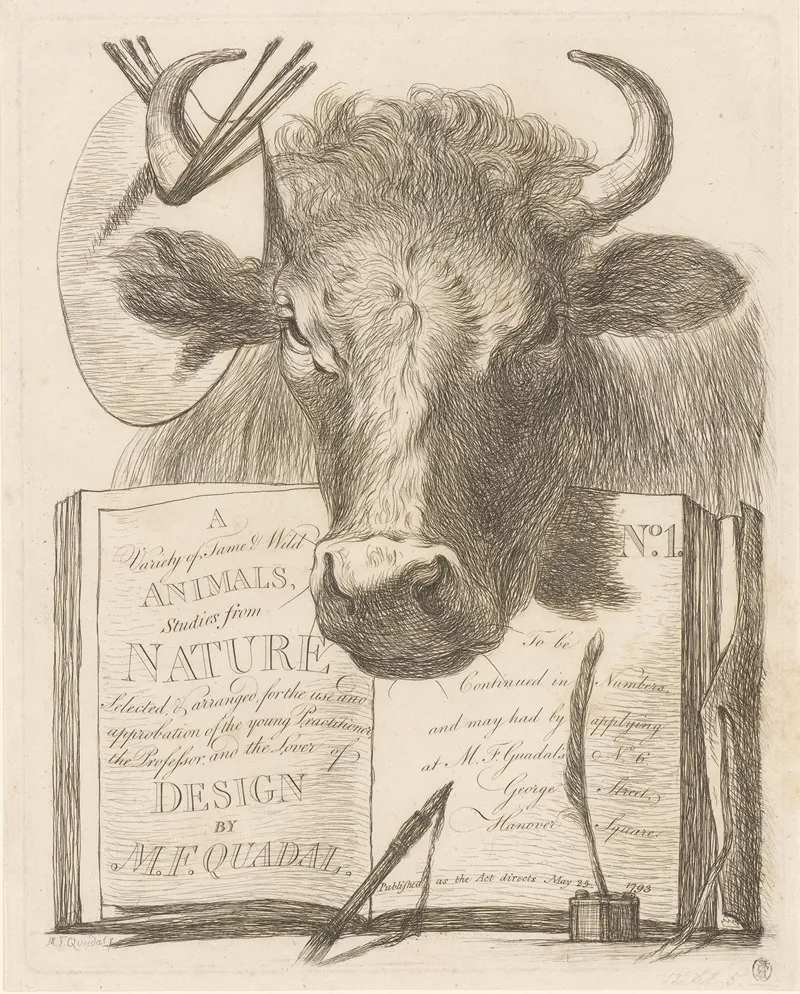 A
Variety of Tame & Wild
ANIMALS,
Studies from
NATURE
Selected, & arranged, for the use and
approbation of the young Practitioner,
the Professor, and the Lover of
DESIGN
BY
M.F. QUADAL.
No. 1.
To be
Continued in Numbers,
and may had by applying
at M. F. Quadal's No. 6,
George Street,
Hanover Square.
Published as the Act directs May 25. 1793
M. F. Quadal f.